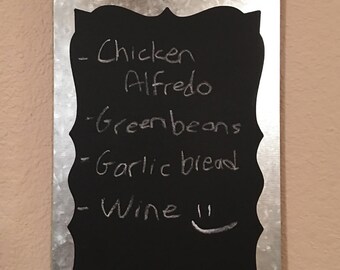 - Chicken
Alfredo
- Greenbeans
- Garlic bread
- Wine